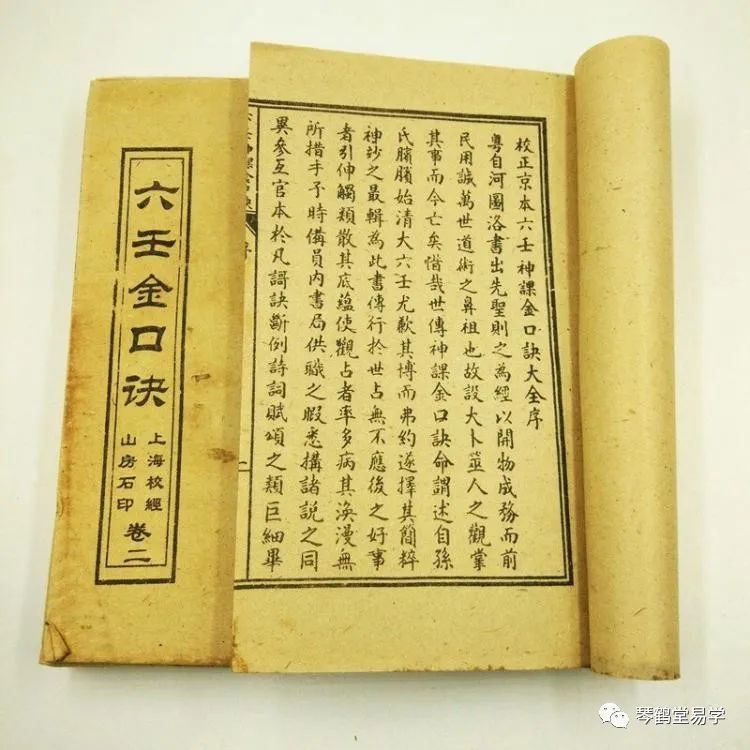 六壬金口诀
上海校經
山房石印
卷二
校正京本六壬神課金口訣大全序
粵自河圖洛書出先聖則之為經以開物成務而前
民用誠萬世道術之鼻祖也故設大卜筮人之觀掌
其事而今亡矣惜哉世傳神課金口訣命謂述自孫
氏臏臏始清大六壬尤歉其博而弗約遂擇其簡粹
神玅之最輯為此書傳行於世占無不應後之好事
者引伸觸類散其底蘊使觀占者率多病其渙漫無
所措手予時備員內書局供職之暇悉搆諸説之同
異參互官本於凡謌訣斷例詩詞賦頌之類巨細畢
二
琴鹤堂易学